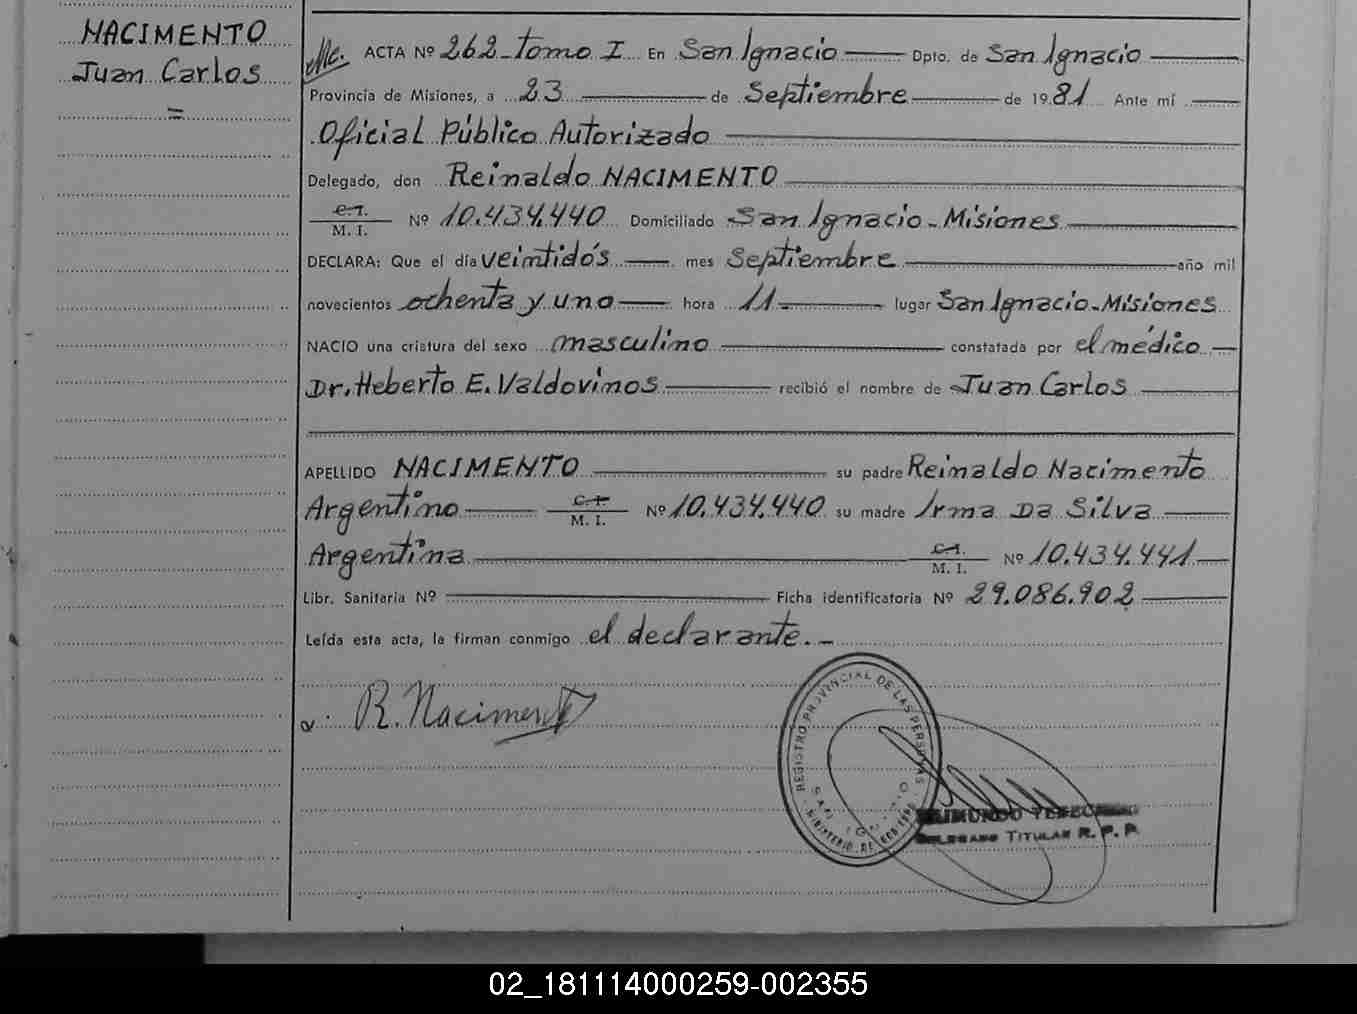 NACIMENTO
Juan Carlos
=
ACTA Nº 262 - tomo I En San Ignacio Dpto. de San Ignacio
Provincia de Misiones, a 23 de Septiembre de 1981 Ante mí
Oficial Público Autorizado
Delegado, don Reinaldo NACIMENTO
C.I.
M. I. Nº 10.434.440 Domiciliado San Ignacio - Misiones
DECLARA: Que el día veintidós mes Septiembre año mil
novecientos ochenta y uno hora 11 lugar San Ignacio - Misiones
NACIO una criatura del sexo masculino constatada por el médico
Dr. Heberto E. Valdovinos recibió el nombre de Juan Carlos
APELLIDO NACIMENTO su padre Reinaldo Nacimento
Argentino C.I.
M. I. Nº 10.434.440 su madre Irma Da Silva
Argentina C.I.
M. I. Nº 10.434.441
Libr. Sanitaria Nº Ficha identificatoria Nº 29.086.902
Leída esta acta, la firman conmigo el declarante. -
R. Nacimento
REGISTRO PROVINCIAL DE LAS PERSONAS
SAN IGNACIO
MINISTERIO DE GOBIERNO
RAIMUNDO
DELEGADO TITULAR R. P. P.
02_181114000259-002355